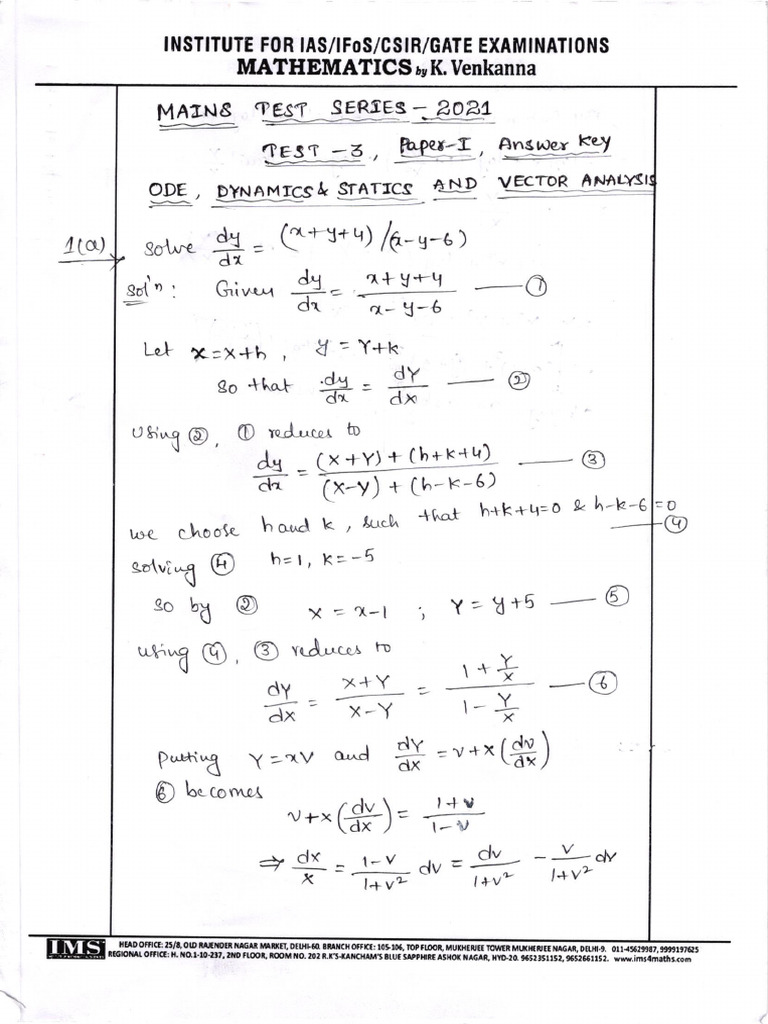 INSTITUTE FOR IAS/IFoS/CSIR/GATE EXAMINATIONS
MATHEMATICS by K. Venkanna
MAINS TEST SERIES - 2021
TEST -3, Paper-I, Answer Key
ODE, DYNAMICS & STATICS AND VECTOR ANALYSIS
1(a) Solve dy/dx = (x+y+4)/(x-y-6)
Sol'n: Given dy/dx = (x+y+4)/(x-y-6) —— ①
Let x = X+h, y = Y+k
So that dy/dx = dY/dX —— ②
Using ②, ① reduces to
dy/dx = ((X+Y)+(h+k+4))/((X-Y)+(h-k-6)) —— ③
we choose h and k, such that h+k+4=0 & h-k-6=0 —— ④
solving ④ h=1, k=-5
so by ② X = x-1 ; Y = y+5 —— ⑤
using ④, ③ reduces to
dY/dX = (X+Y)/(X-Y) = (1+Y/X)/(1-Y/X) —— ⑥
putting Y=XV and dY/dX = v+x(dv/dx)
⑥ becomes
v+x(dv/dx) = (1+v)/(1-v)
⇒ dx/x = (1-v)/(1+v²) dv = dv/(1+v²) - v/(1+v²) dv
IMS HEAD OFFICE: 25/8, OLD RAJENDER NAGAR MARKET, DELHI-60. BRANCH OFFICE: 105-106, TOP FLOOR, MUKHERJEE TOWER MUKHERJEE NAGAR, DELHI-9. 011-45629987, 9999197625
REGIONAL OFFICE: H. NO.1-10-237, 2ND FLOOR, ROOM NO. 202 R.K'S-KANCHAM'S BLUE SAPPHIRE ASHOK NAGAR, HYD-20. 9652351152, 9652661152. www.ims4maths.com